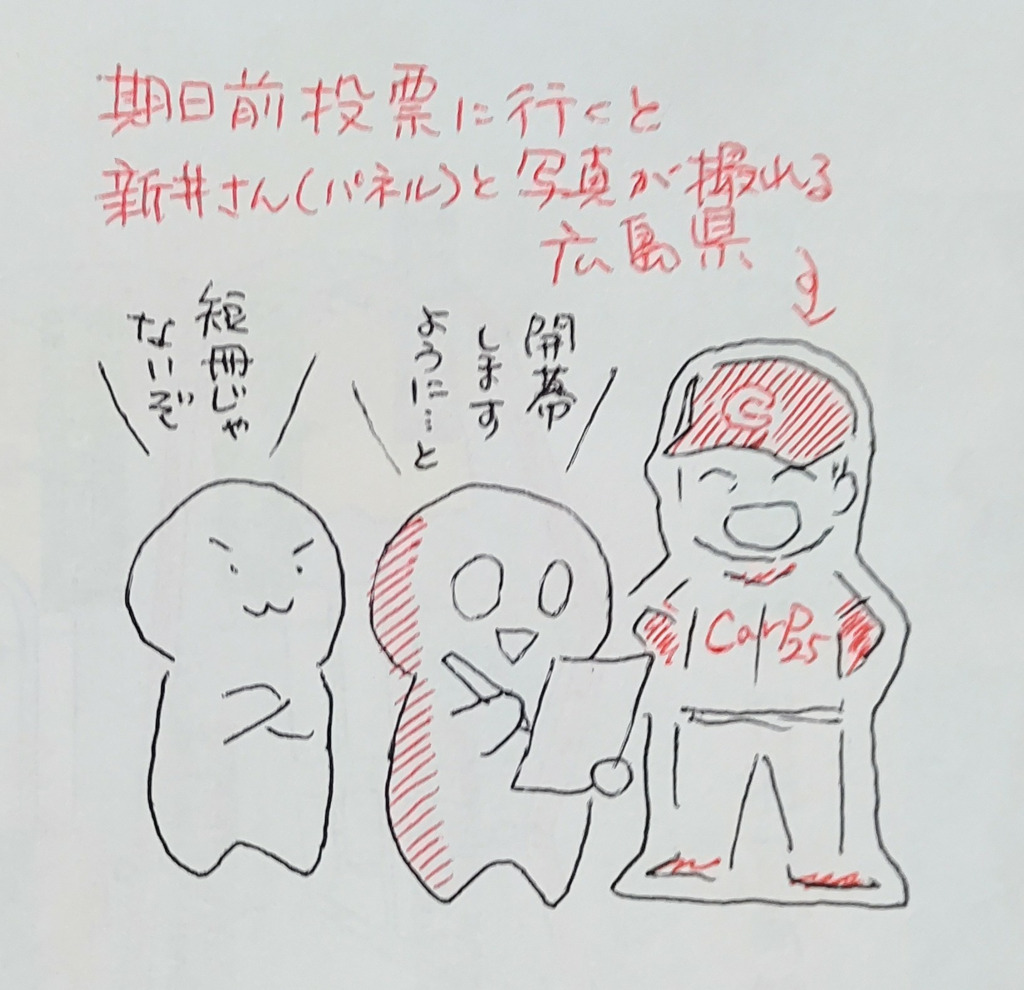 期日前投票に行くと
新井さん(パネル)と写真が撮れる
広島県
開幕
します
ように…と
短冊じゃ
ないぞ
C
Carp
25